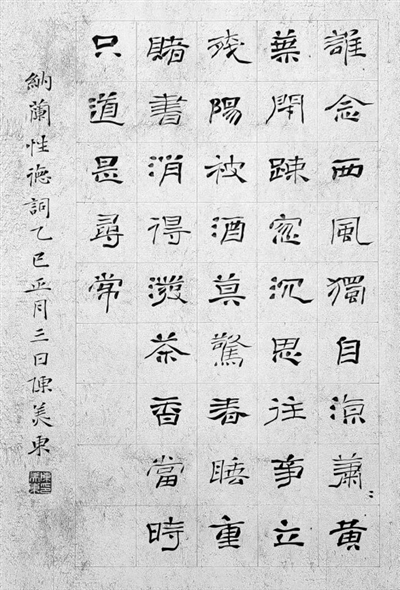 誰念西風獨自涼蕭〻黄
葉閉疎窓沉思往事立
殘陽被酒莫驚春睡重
賭書消得潑茶香當時
只道是尋常
納蘭性德詞乙巳正月三日陳美東